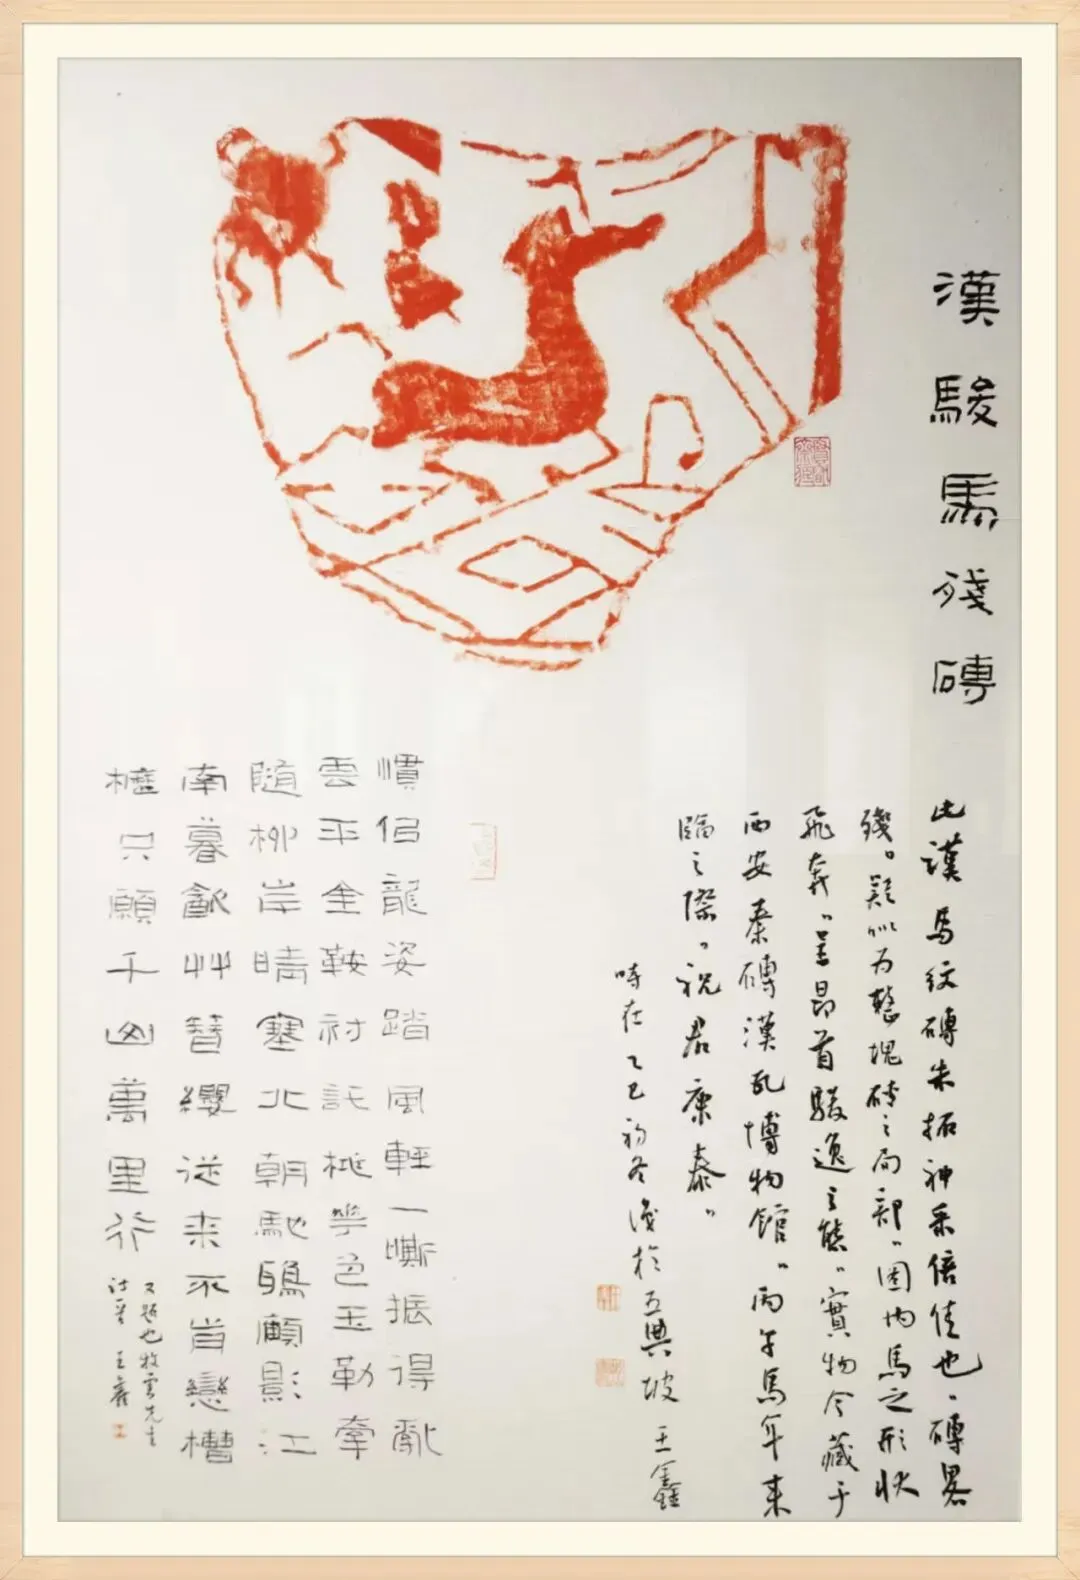 漢駿馬殘磚
此漢馬紋磚朱拓神采倍佳也。磚畧
殘。疑似为整塊磚之局部。圖内馬之形狀
飛奔。呈昂首駿逸之態。實物今藏于
西安秦磚漢瓦博物館。丙午馬年来
臨之際。祝君康泰。
時在乙巳初冬後於五典坡王鑫
慣侣龍姿踏風輕一嘶振得亂
雲平金鞍衬託桃華色玉勒牽
随柳岸晴塞北朝馳顧影江
南暮艸替纓従来不肯戀槽
櫪只願千山萬里行
又題也牧雲先生
詩王鑫